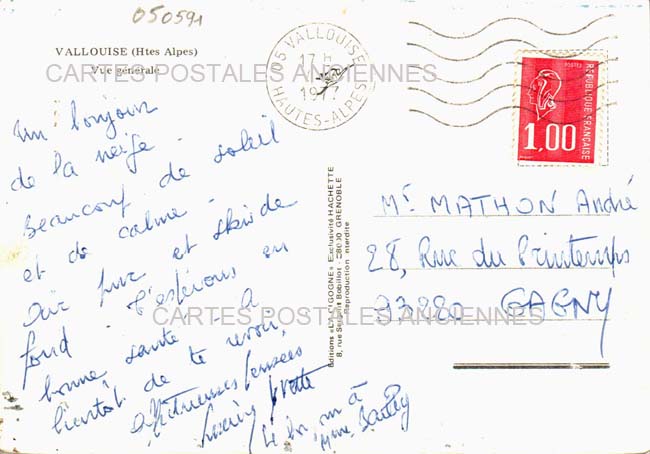 050591
VALLOUISE (Htes Alpes)
Vue générale
CARTES POSTALES ANCIENNES
Un bonjour
de la neige
Beaucoup de soleil
et de calme -
Air pur et ski de
fond - J'espérons en
bonne santé - A
bientôt de te revoir,
affectueuses pensées
Yvette
à
Mme
05 VALLOUISE
17 H
1977
HAUTES-ALPES
POSTES
REPUBLIQUE FRANCAISE
1,00
Editions «LA CIGOGNE» Exclusivité HACHETTE
8, rue Sergent Bobillot - 38000 GRENOBLE
Reproduction interdite
Mr MATHON André
28, Rue du Printemps
93220 GAGNY
CARTES POSTALES ANCIENNES